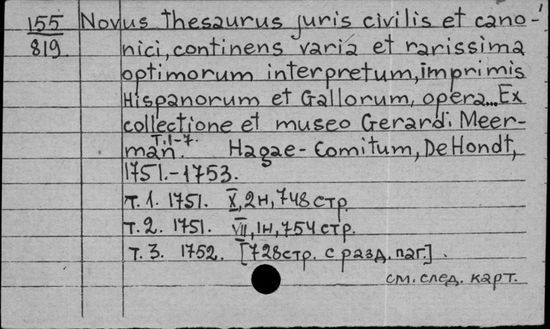 155 Novus thesaurus juris civilis et cano-
819 nici, continens varia et rarissima
optimorum interpretum, imprimis
Hispanorum et Gallorum, opera... Ex
collectione et museo Gerardi Meer-
man. т.1-7. Hagae-Comitum, De Hondt,
1751.-1753.
т.1. 1751. X, 2н, 748 стр.
т.2. 1751. VII, 1н, 754 стр.
т.3. 1752. [728 стр. с разд. паг.].
см. след. карт.